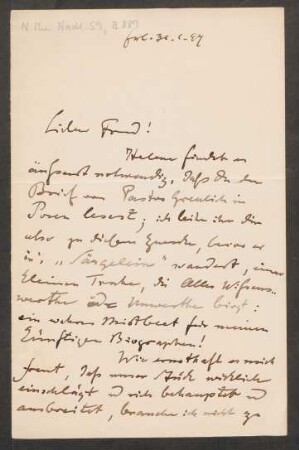 N. Mus. Nachl. 59, B 287
Frkf. 30.1.97
Lieber Freund!
Helene findet es
äusserst notwendig, dass Du den
Brief von Pastor Greulich in
Posen liesest; ich leihe ihn Dir
also zu diesem Zwecke, bevor er
in's „Särgelein" wandert, einer
kleinen Truhe, die alles Wissens-
werthe oder Unwerthe birgt:
ein wahres Mistbeet für meinen
künftigen Biographen!
Wie ernsthaft es mich
freut, dass unser Stück wirklich
einschlägt u sich behauptet u
ausbreitet, brauche ich nicht zu